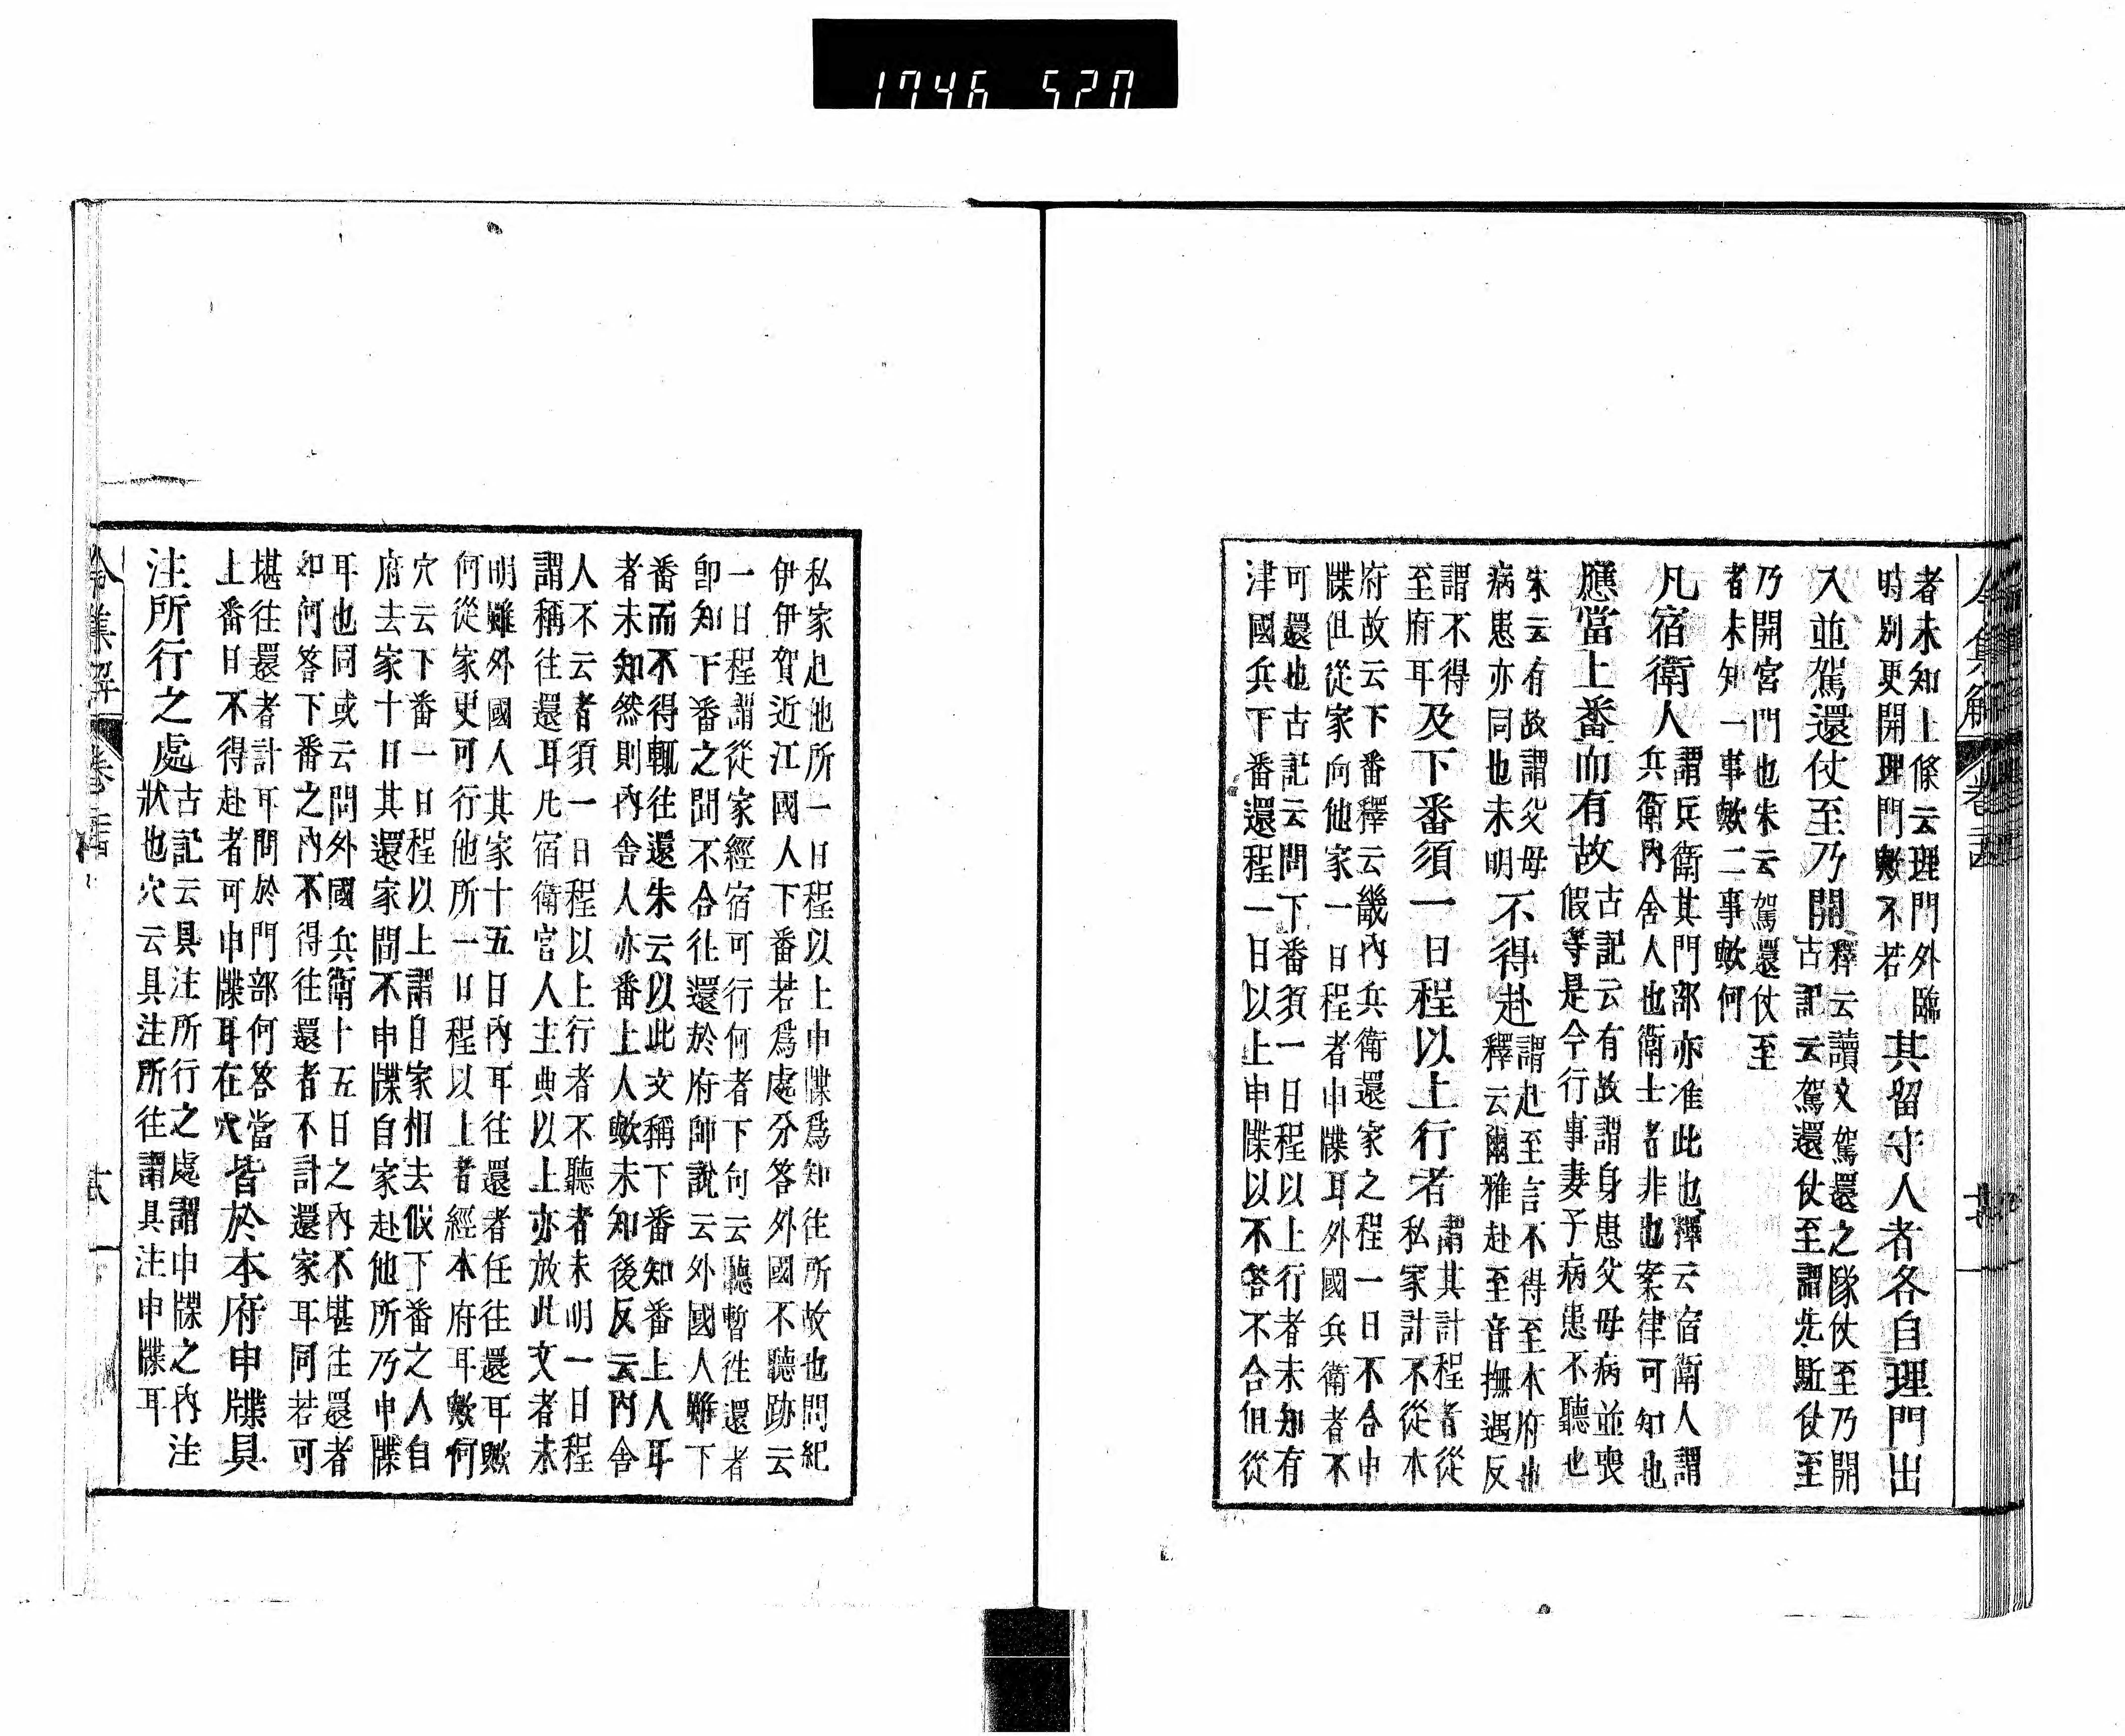 1746 520
者未知上條云理門外臨
時別更開理門歟不若
其留守人者各自理門出
入並駕還仗至乃開
釋云讀文駕還之隊仗至乃開
古記云駕還仗至謂先駈仗至
乃開宮門也朱云駕還仗至
者未知一事歟二事歟何
凡宿衛人
謂兵衛其門部亦准此也釋云宿衛人謂
兵衛內舍人也衛士者非也案律可知也
應當上番而有故
古記云有故謂身患父母病並喪
假等是今行事妻子病患不聽也
朱云有故謂父母
病患亦同也未明
不得赴
謂赴至言不得至本府也
釋云爾雅赴至音撫遇反
謂不得
至府耳
及下番須一日程以上行者
謂其計程者從
私家計不從本
府故云下番釋云畿內兵衛還家之程一日不合申
牒但從家向他家一日程者申牒耳外國兵衛者不
可還也古記云問下番須一日程以上行者未知有
津國兵下番還程一日以上申牒以不答不合但從
私家赴他所一日程以上申牒爲知往所故也問紀
伊伊賀近江國人下番若爲處分答外國不聽跡云
一日程謂從家經宿可行何者下句云聽暫往還者
卽知下番之間不合往還於府師說云外國人雖下
番而不得輒往還朱云以此文稱下番知番上人耳
者未知然則內舍人亦番上人歟未知後反云內舍
人不云者須一日程以上行者不聽者未明一日程
謂稱往還耳凡宿衛官人主典以上亦放此文者未
明雖外國人其家十五日內耳往還者任往還耳歟
何從家更可行他所一日程以上者經本府耳歟何
穴云下番一日程以上謂自家相去假下番之人自
府去家十日其還家間不申牒自家赴他所乃申牒
耳也同或云問外國兵衛十五日之內不堪往還者
如何答下番之內不得往還者不計還家耳同若可
堪往還者計耳問於門部何答當
上番日不得赴者可申牒耳在穴
皆於本府申牒具
注所行之處
古記云具注所行之處謂申牒之內注
狀也穴云具注所往謂具注申牒耳